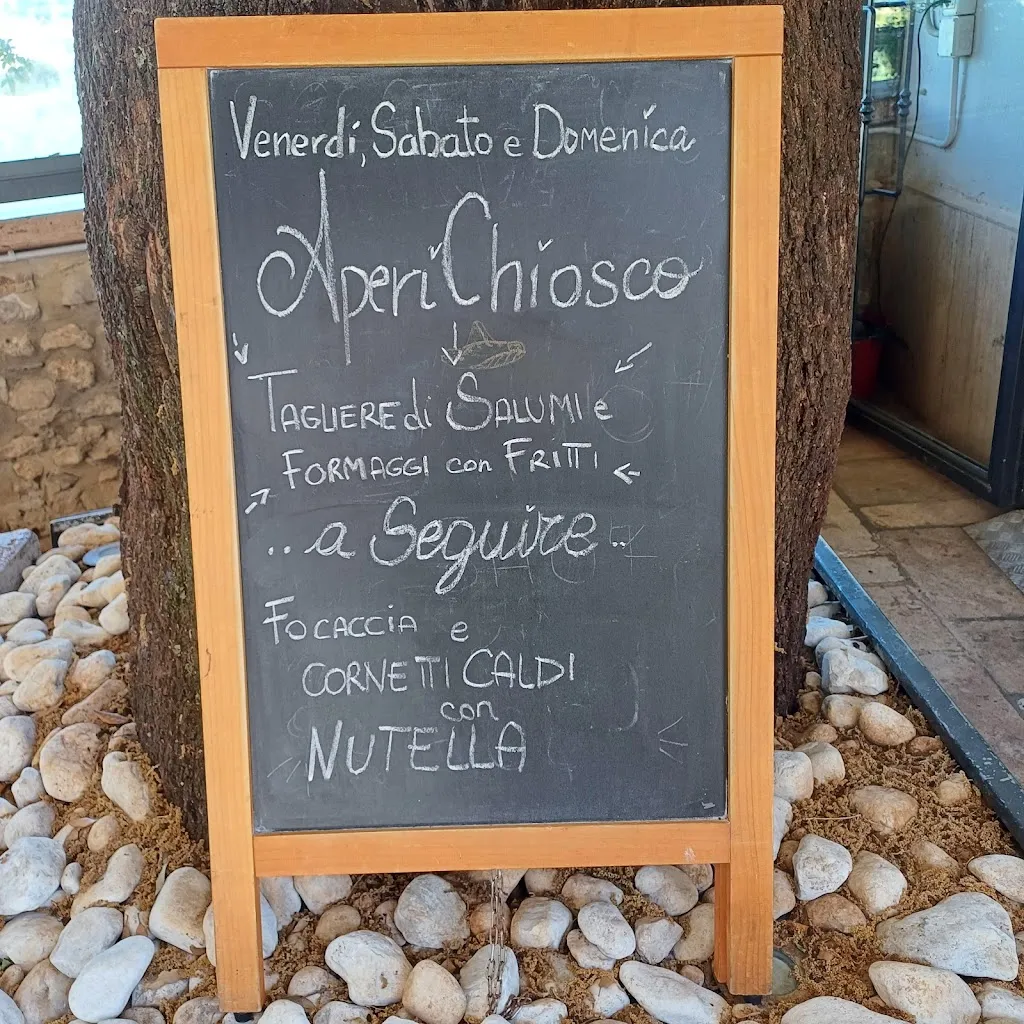 Venerdì, Sabato e Domenica
AperiChiosco
TAGLIERE di SALUMI e
FORMAGGI con FRITTI
..a Seguire..
FOCACCIA e
CORNETTI CALDI
con
NUTELLA